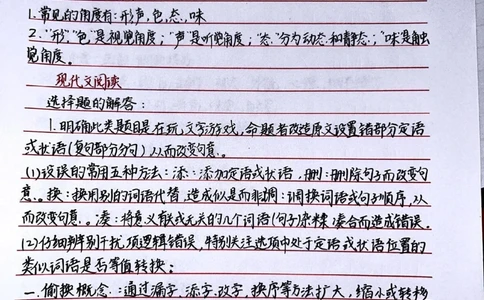 1.常见的角度有:形,声,色,态,味
2."形""色"是视觉角度;"声"是听觉角度;"态"分为动态和静态;"味"是触
觉角度。
现代文阅读
选择题的解答:
1.明确此类题目是在玩文字游戏,命题者改造原文设置错部分定语
或状语(复句部分分句)从而改变句意。
(1)设误的常用五种方法:添:添加定语或状语,删:删除句子而改变句
意。换:换用别的词语代替,造成似是而非,调:调换词语或句子顺序,从
而改变句意。凑:将意义有联或无关的几个词语(句子)杂糅凑合而造成错误。
(2)仔细辨别干扰项逻辑错误,特别关注选项中处于定语或状语位置的
类似词语是否等值转换:
一.偷换概念:通过漏字、添字、改字、换序等方法扩大,缩小或转移